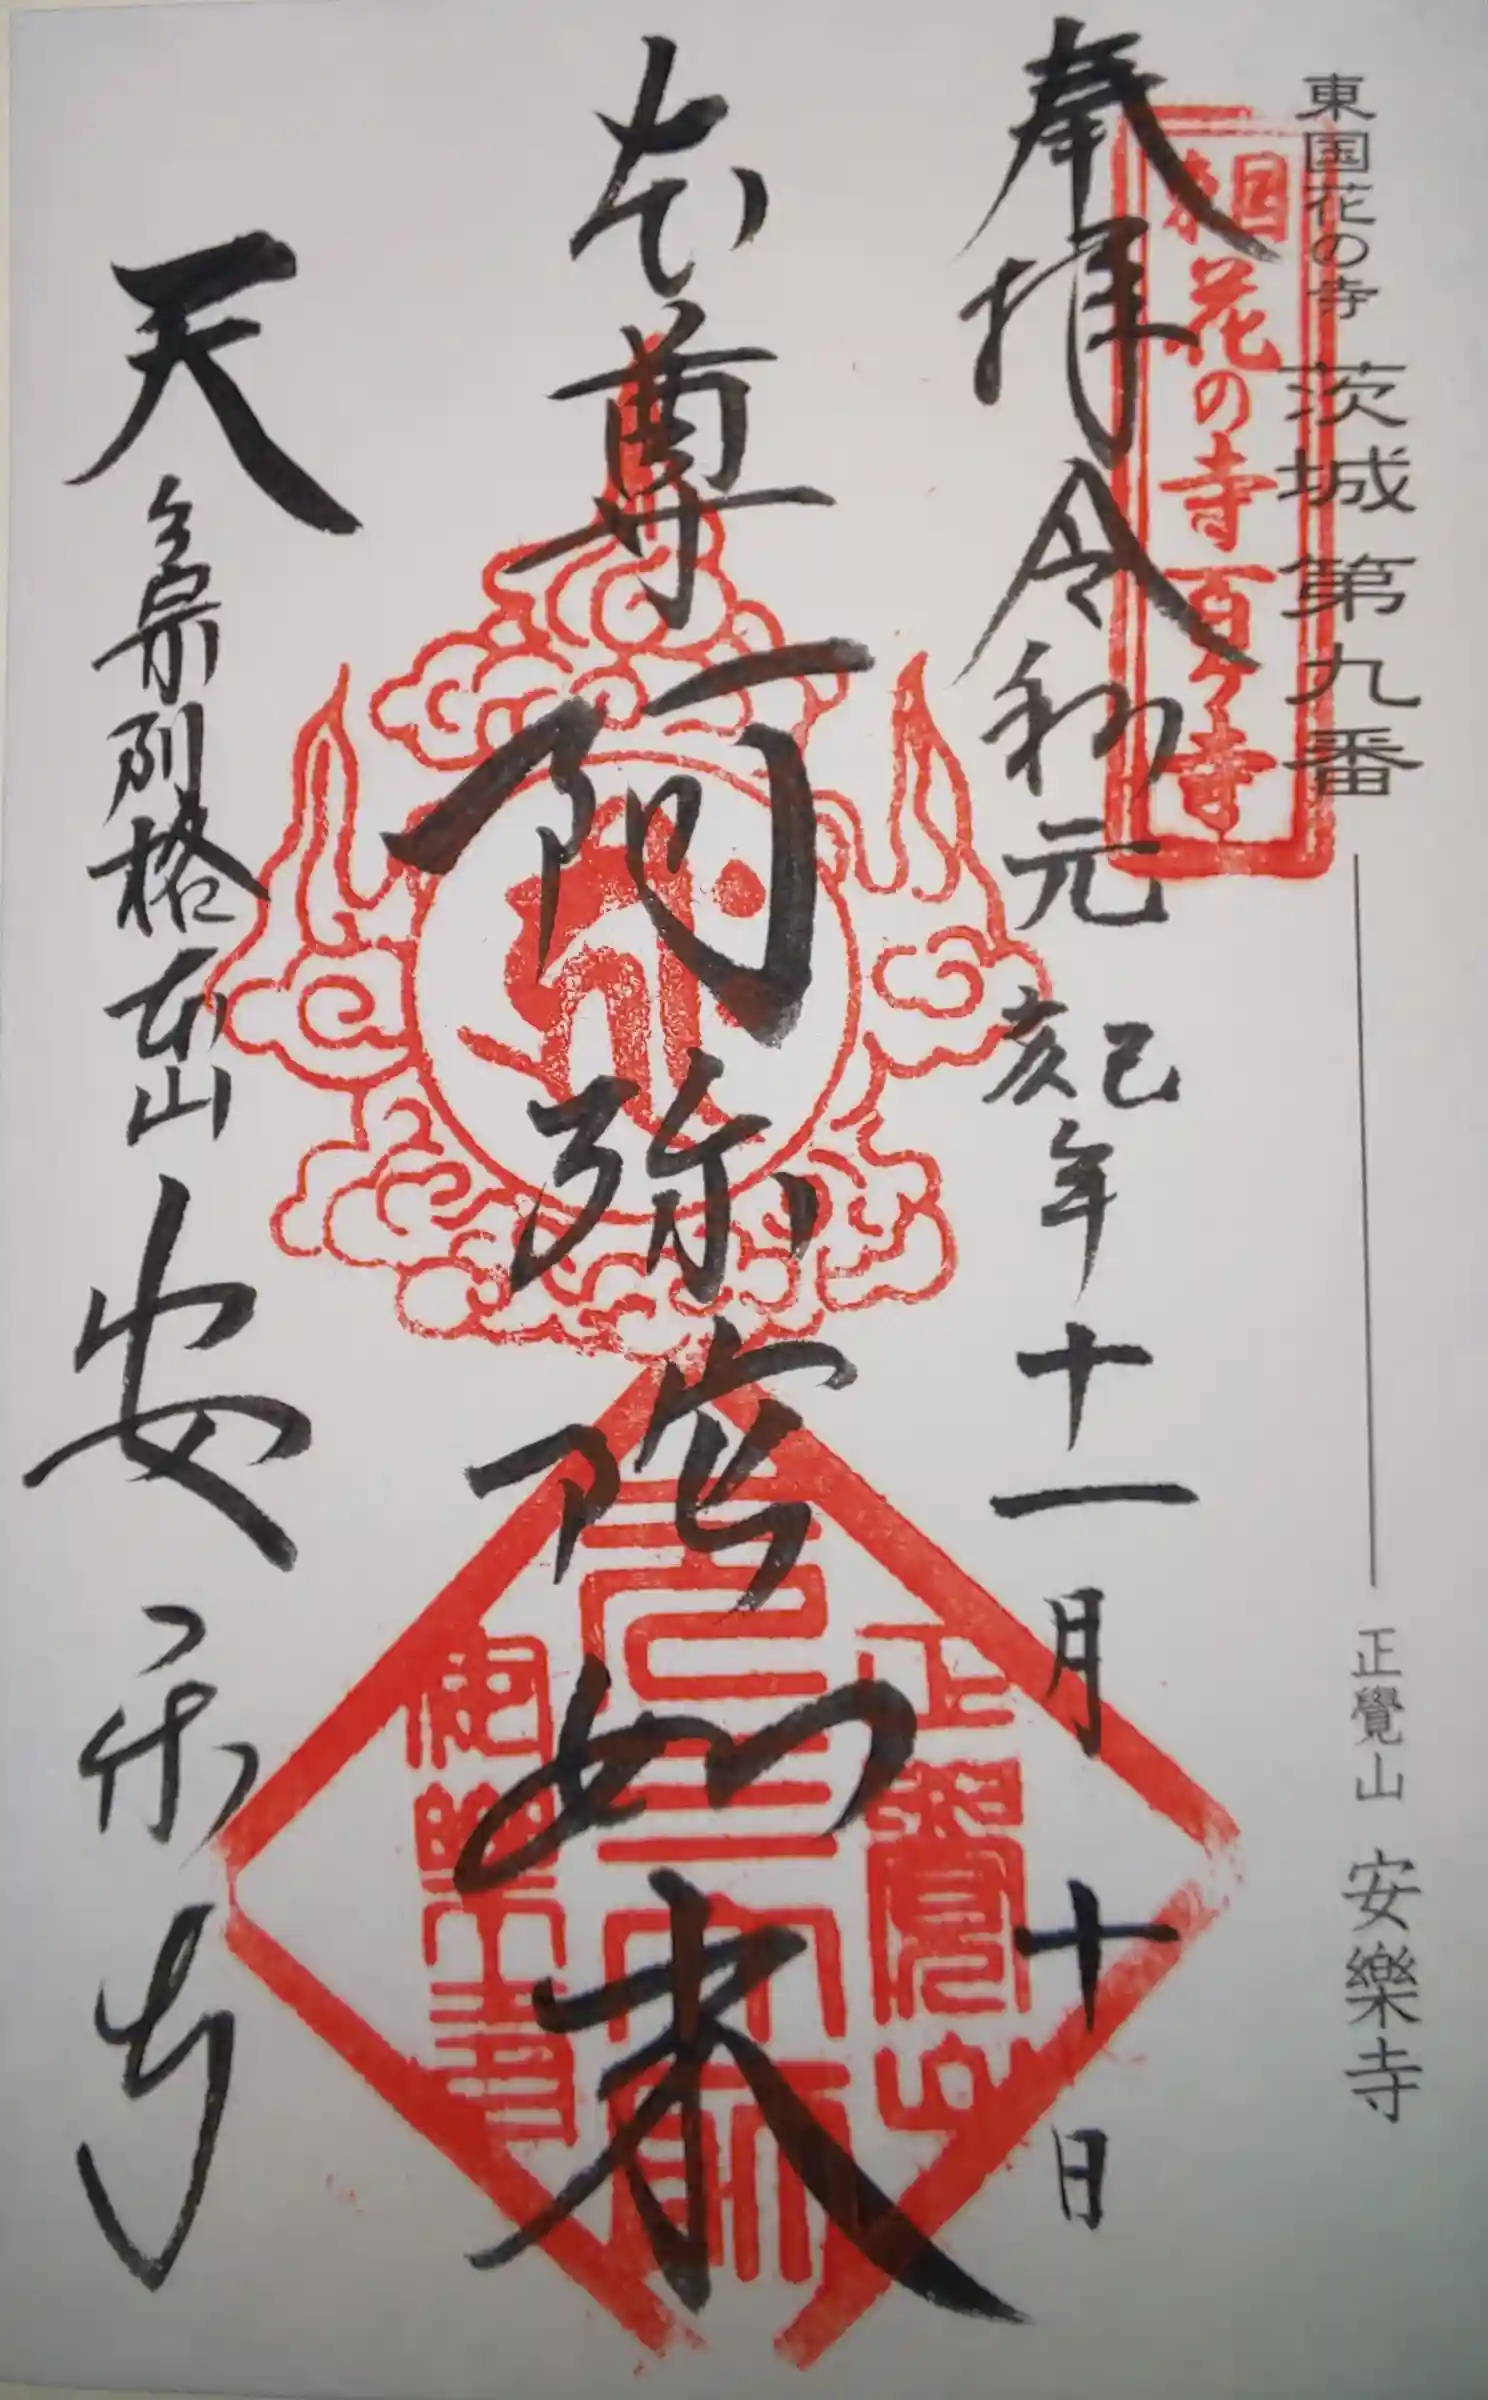 東国花の寺 茨城第九番 正覺山 安樂寺
花の寺百ヶ寺
奉拝 令和元己亥年十一月十日
本尊 阿弥陀如来
天台宗別格本山 安楽寺